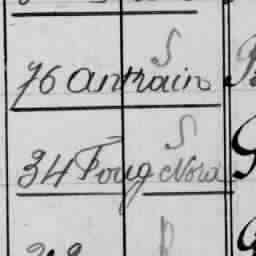 S
76 Antrain
S
34 Foug Nord
R